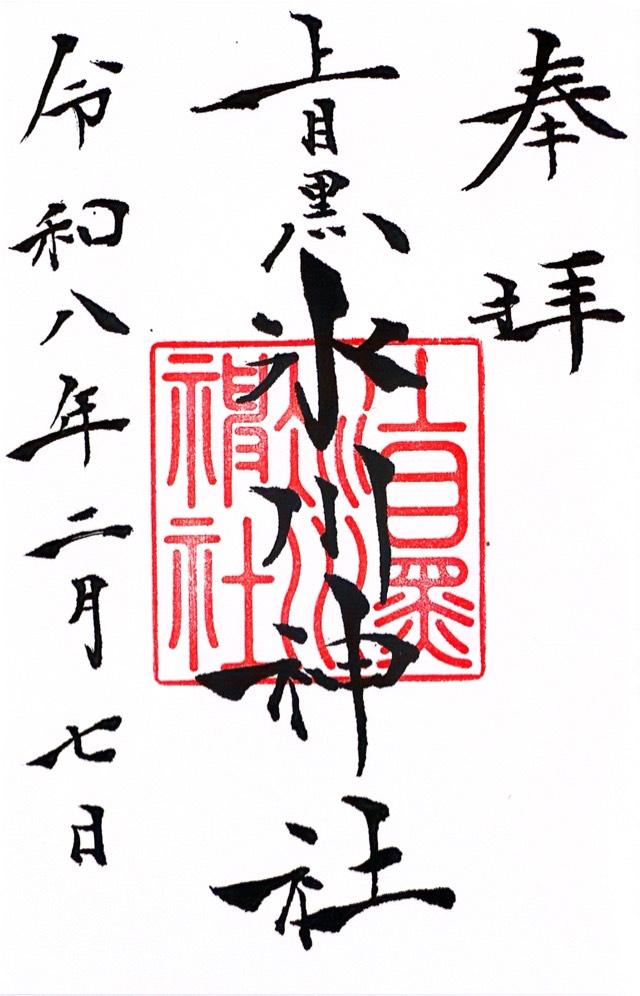 奉拝
上目黒氷川神社
上目黒
氷川
神社
令和八年二月七日